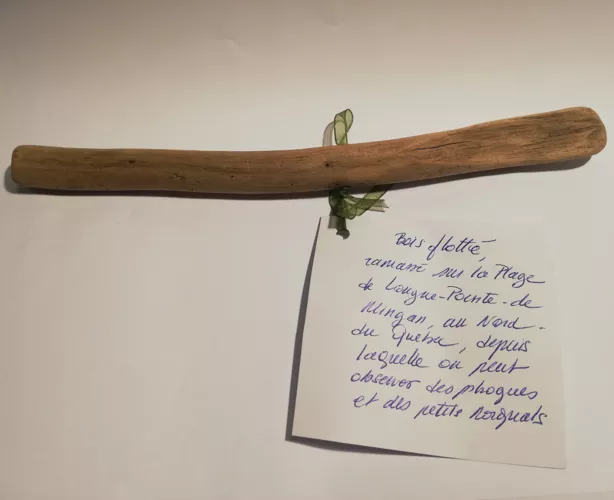 Bois flotté,
ramassé sur la Plage
de Longue-Pointe-de
Mingan, au Nord-
du Québec, depuis
laquelle on peut
observer des phoques
et des petits Rorquals